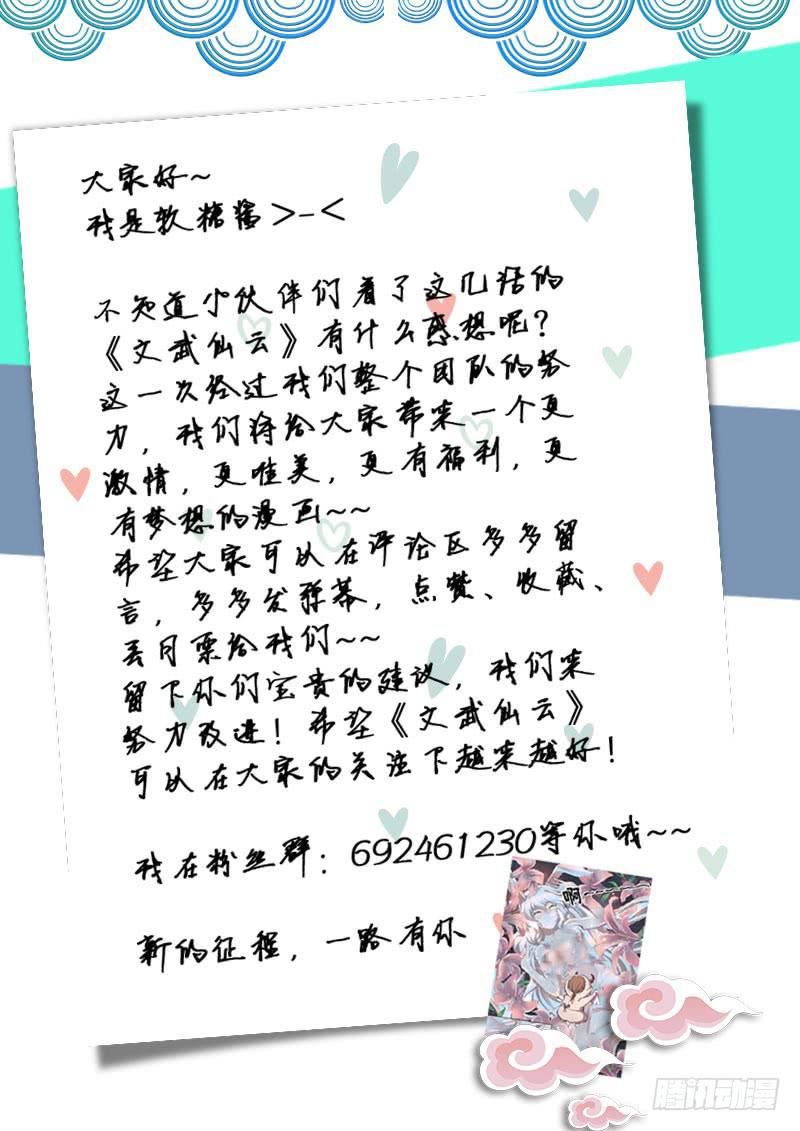 大家好~
我是软糖酱>-<
不知道小伙伴们看了这几话的
《文武仙云》有什么感想呢？
这一次经过我们整个团队的努
力，我们将给大家带来一个更
激情，更唯美，更有福利，更
有梦想的漫画~~
希望大家可以在评论区多多留
言，多多发弹幕，点赞、收藏、
丢月票给我们~~
留下你们宝贵的建议，我们来
努力改进！希望《文武仙云》
可以在大家的关注下越来越好！
我在粉丝群：692461230等你哦~~
啊~~~~~
新的征程，一路有你
腾讯动漫